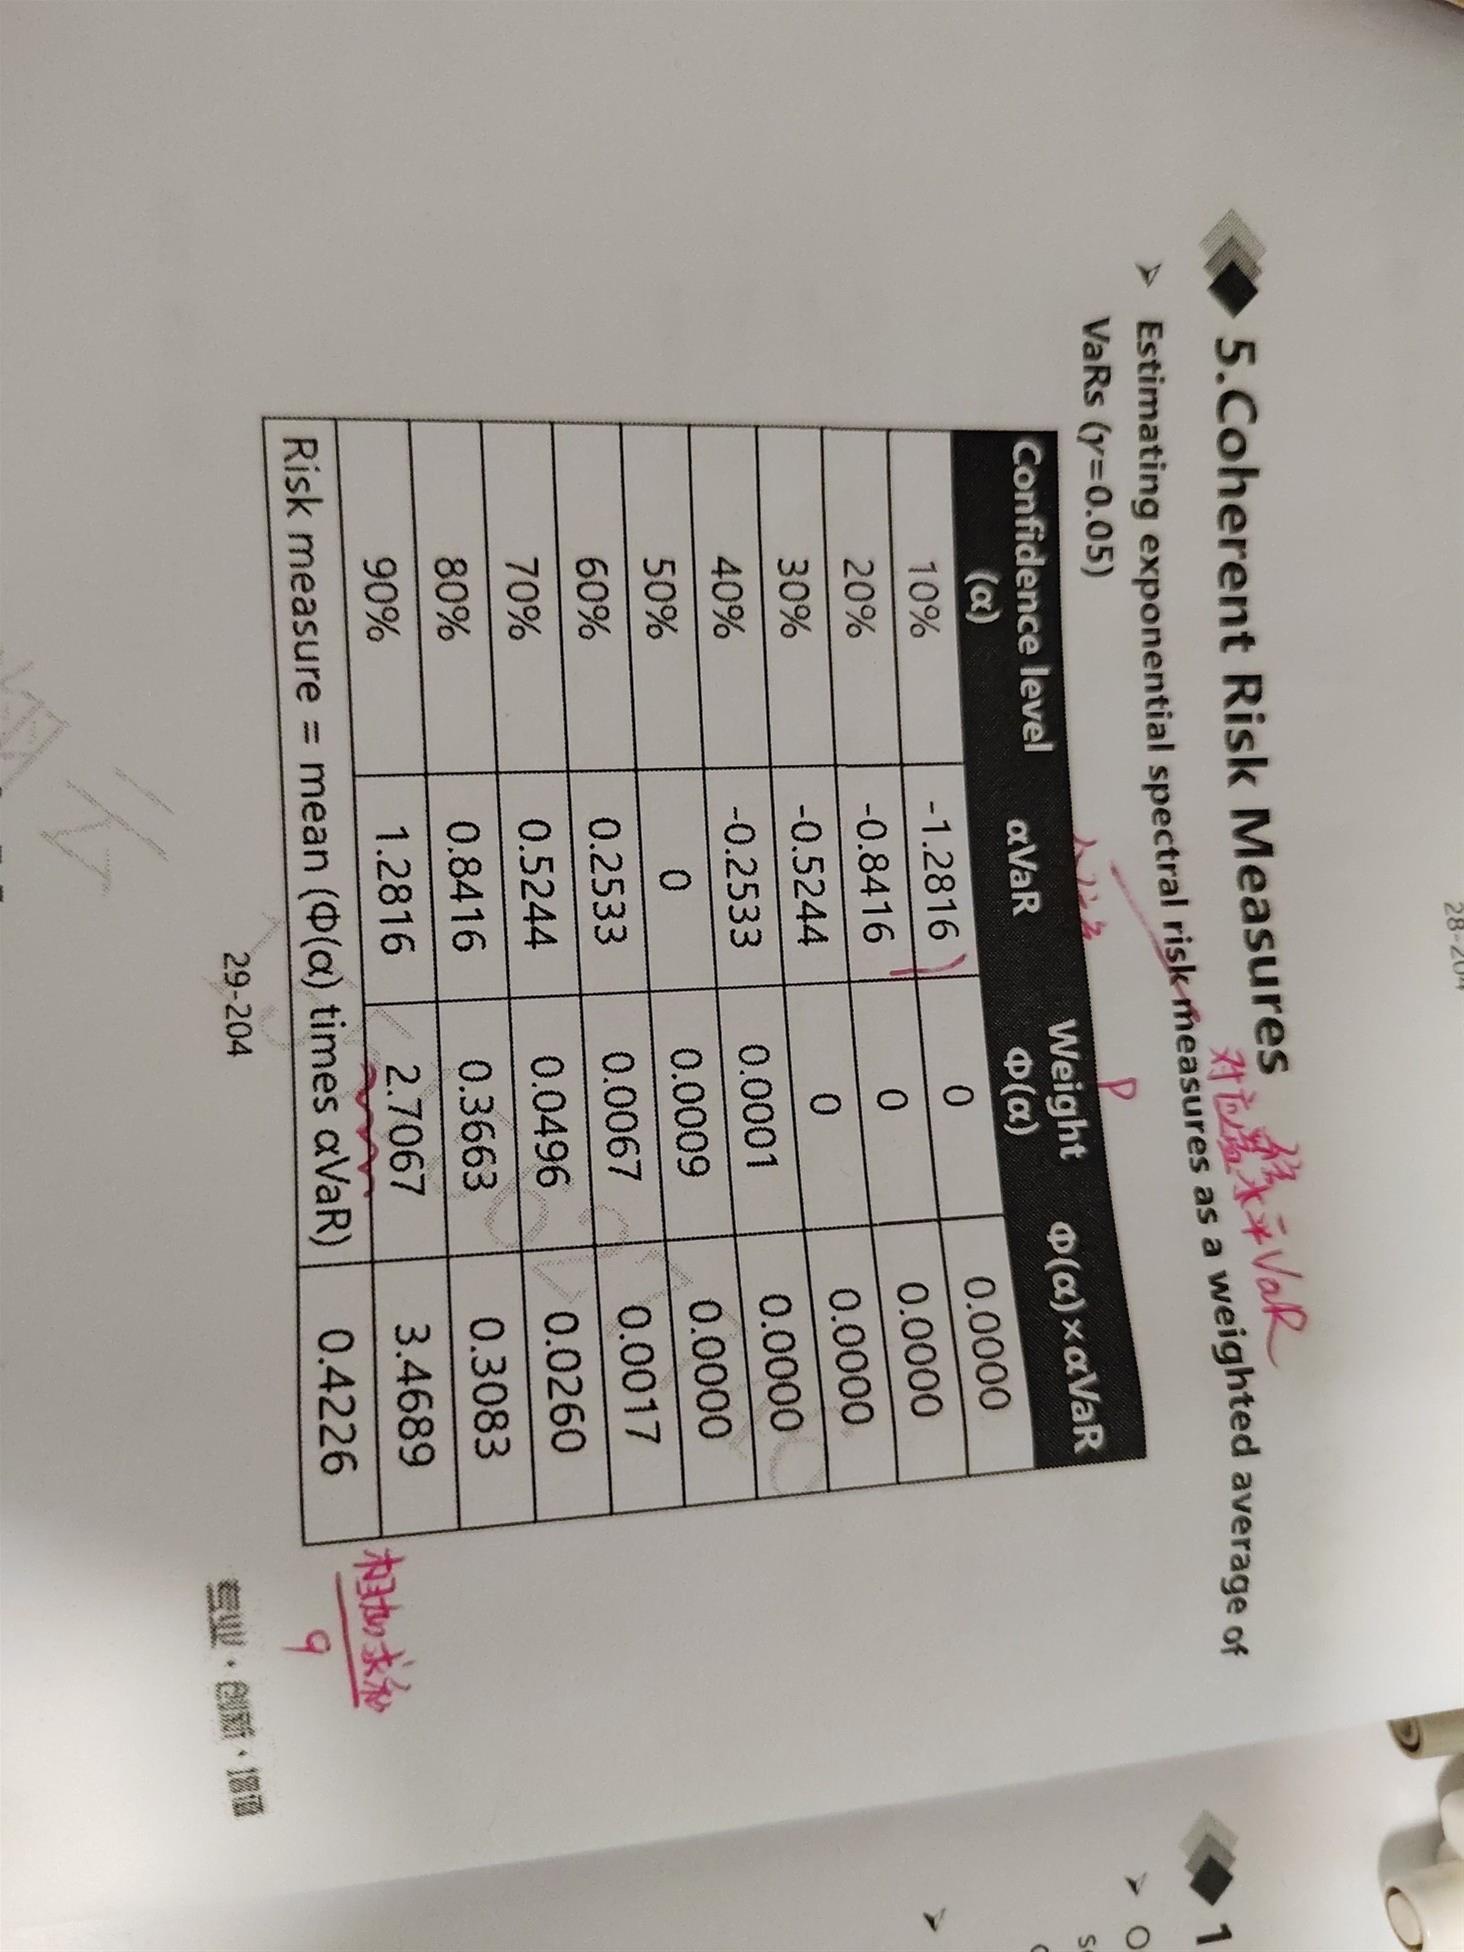 28-204
5.Coherent Risk Measures
对应
VaR
➢ Estimating exponential spectral risk measures as a weighted average of
VaRs (γ=0.05)
P
Confidence level (α) αVaR Weight Φ(α) Φ(α)×αVaR
10% -1.2816 0 0.0000
20% -0.8416 0 0.0000
30% -0.5244 0 0.0000
40% -0.2533 0.0001 0.0000
50% 0 0.0009 0.0000
60% 0.2533 0.0067 0.0017
70% 0.5244 0.0496 0.0260
80% 0.8416 0.3663 0.3083
90% 1.2816 2.7067 3.4689
Risk measure = mean (Φ(α) times αVaR) 0.4226
相加求和
9
29-204
专业·创新·增值
1
➢ O
➢